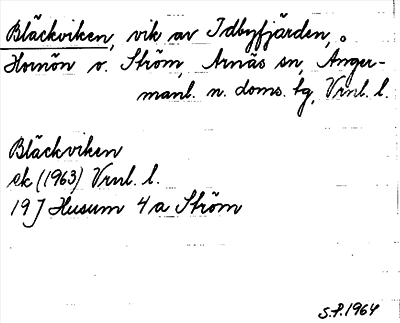 Bläckviken, vik av Idbyfjärden,
Hornön o. Ström, Arnäs sn, Ånger-
manl. n. doms. tg, Vrnl. l.
Bläckviken
ek (1963) Vrnl. l.
19 J Husum 4 a Ström
S.P. 1964